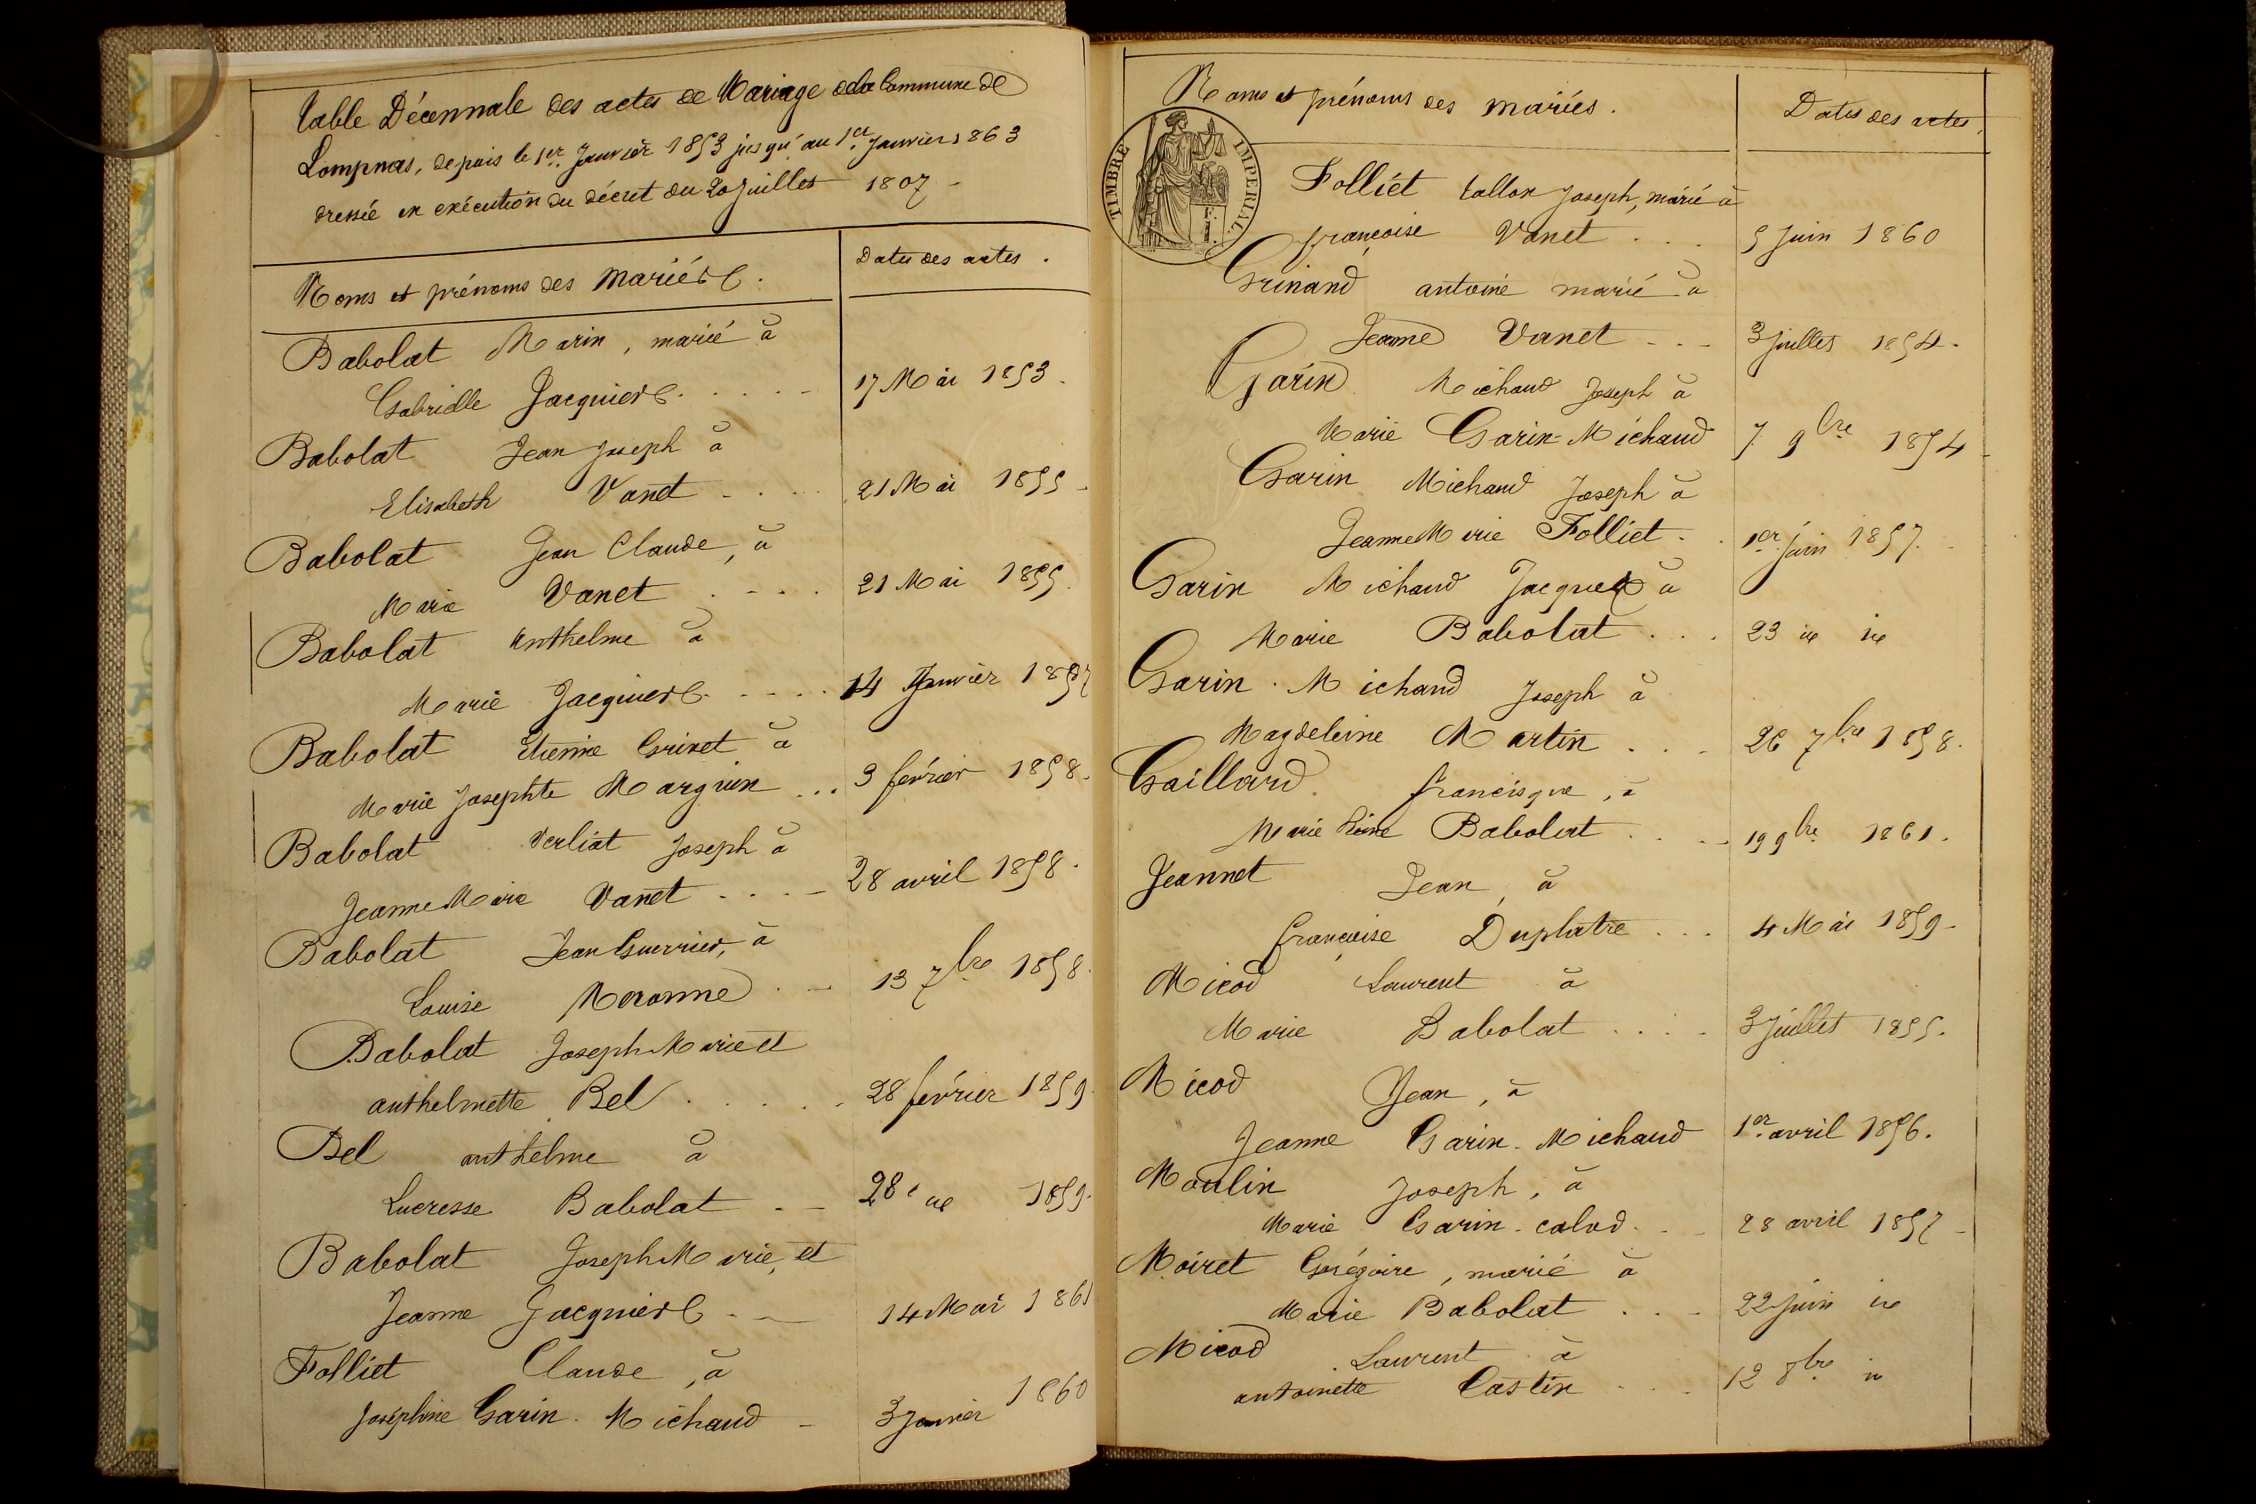 Table Décennale des actes de Mariage de la Commune de
Lompnas, depuis le 1er Janvier 1853 jusqu'au 1er Janvier 1863
dressée en exécution du décret du 20 Juillet 1807 -
Noms et prénoms des mariés.
Dates des actes.
Babolat Marin, marié à
Gabrielle Jacquier . . . . . 17 Mai 1853.
Babolat Jean Joseph à
Elisabeth Vanet - . . . 21 Mai 1855 -
Babolat Jean Claude, à
Marie Vanet . - . . 21 Mai 1855.
Babolat Anthelme à
Marie Jacquier . - - - . 14 Janvier 1857
Babolat Etienne Grinet à
Marie Josephte Marguin ... 3 février 1858.
Babolat Verliat Joseph à
Jeanne Marie Vanet - . . . - 28 avril 1858.
Babolat Jean Guerrier, à
Louise . - 13 7bre 1858.
Babolat Joseph Marie et
anthelmette Bel . . . . . 28 février 1859.
Bel anthelme à
Lucresse Babolat . - 28 1859.
Babolat Joseph Marie, et
Jeanne Jacquier - - 14 Mai 1861
Folliet Claude, à
Joséphine Garin. Michaud - 3 Janvier 1860
Noms et prénoms des mariés.
Dates des actes.
TIMBRE IMPERIAL.
Folliet tallon Joseph, marié à
françoise Vanet . . . 5 Juin 1860
Grinand antoine marié à
Jeanne Vanet - - - 3 juillet 1854.
Garin Michaud Joseph à
Marie Garin-Michaud 7 9bre 1854 -
Garin Michaud Joseph à
Jeanne Marie Folliet - . 1er juin 1857. -
Garin Michaud Jacques à
Marie Babolat . . . 23 ie ie
Garin. Michaud Joseph à
Magdeleine Martin . . - 26 7bre 1858.
Gaillard. francisque, à
Marie Reine Babolat . . - - 19 9bre 1861.
Jeannet Jean, à
françoise Duplatre ... 4 Mai 1859 -
Micod Laurent à
Marie Babolat . . . - 3 Juillet 1855.
Micod Jean, à
Jeanne Garin-Michaud 1er avril 1856.
Moulin Joseph, à
Marie Garin-calod - - 28 avril 1857 -
Moiret Grégoire, marié à
Marie Babolat . . - 22 juin ie
Micod Laurent à
antoinette Castin . . - 12 8bre ie